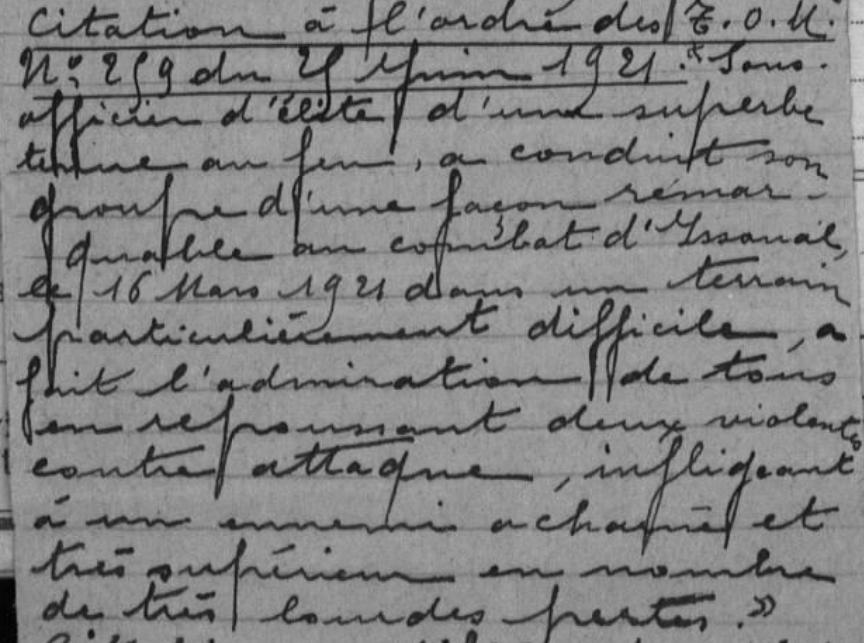 Citation à l'ordre des T.O.M.
N° 259 du 25 Juin 1921. "Sous-
officier d'élite d'une superbe
tenue au feu, a conduit son
groupe d'une façon remar-
quable au combat d'Issoual,
le 16 Mars 1921 dans un terrain
particulièrement difficile, a
fait l'admiration de tous
en repoussant deux violents
contre attaque, infligeant
à un ennemi acharné et
très supérieur en nombre
de très lourdes pertes."